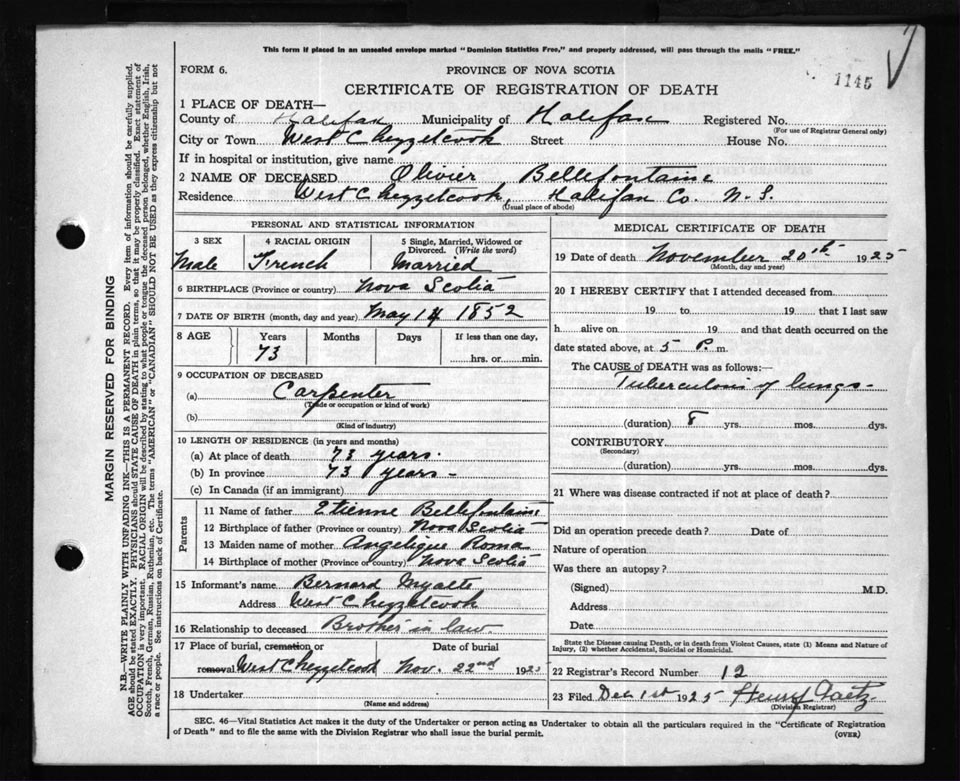 This form if placed in an unsealed envelope marked "Dominion Statistics Free," and properly addressed, will pass through the mails "FREE."
1145
FORM 6.
PROVINCE OF NOVA SCOTIA
CERTIFICATE OF REGISTRATION OF DEATH
1 PLACE OF DEATH—
County of Halifax Municipality of Halifax Registered No.
(For use of Registrar General only)
City or Town West Chezzetcook Street House No.
If in hospital or institution, give name
2 NAME OF DECEASED Olivier Bellefontaine
Residence West Chezzetcook, Halifax Co. N.S.
(Usual place of abode)
PERSONAL AND STATISTICAL INFORMATION
3 SEX 4 RACIAL ORIGIN 5 Single, Married, Widowed or Divorced. (Write the word)
Male French Married
6 BIRTHPLACE (Province or country) Nova Scotia
7 DATE OF BIRTH (month, day and year) May 14 1852
8 AGE Years Months Days If less than one day,
73 hrs. or min.
9 OCCUPATION OF DECEASED
(a) Carpenter
(Trade or occupation or kind of work)
(b)
(Kind of industry)
10 LENGTH OF RESIDENCE (in years and months)
(a) At place of death 73 years.
(b) In province 73 years -
(c) In Canada (if an immigrant)
Parents
11 Name of father Etienne Bellefontaine
12 Birthplace of father (Province or country) Nova Scotia
13 Maiden name of mother Angelique Roma
14 Birthplace of mother (Province or country) Nova Scotia
15 Informant's name Bernard Myatte
Address West Chezzetcook
16 Relationship to deceased Brother in law.
17 Place of burial, cremation or Date of burial
removal West Chezzetcook Nov. 22nd 1925
18 Undertaker
(Name and address)
MEDICAL CERTIFICATE OF DEATH
19 Date of death November 20th 1925
(Month, day and year)
20 I HEREBY CERTIFY that I attended deceased from
19 to 19 that I last saw
h alive on 19 and that death occurred on
date stated above, at 5 P. m.
The CAUSE of DEATH was as follows:—
Tuberculosis of lungs -
(duration) 8 yrs. mos. dys.
CONTRIBUTORY
(Secondary)
(duration) yrs. mos. dys.
21 Where was disease contracted if not at place of death?
Did an operation precede death? Date of
Nature of operation
Was there an autopsy?
(Signed) M.D.
Address
Date
State the Disease causing Death, or in death from Violent Causes, state (1) Means and Nature of
Injury, (2) whether Accidental, Suicidal or Homicidal.
22 Registrar's Record Number 12
23 Filed Dec 1st 1925 Henry Gaetz
(Division Registrar)
SEC. 46—Vital Statistics Act makes it the duty of the Undertaker or person acting as Undertaker to obtain all the particulars required in the "Certificate of Registration
of Death" and to file the same with the Division Registrar who shall issue the burial permit.
(OVER)
MARGIN RESERVED FOR BINDING
N.B.—WRITE PLAINLY WITH UNFADING INK—THIS IS A PERMANENT RECORD. Every item of information should be carefully supplied.
AGE should be stated EXACTLY. PHYSICIANS should STATE CAUSE OF DEATH in plain terms, so that it may be properly classified. Exact statement of
OCCUPATION is very important. RACIAL ORIGIN will be described by stating to what people or tongue the deceased person belonged, whether English, Irish,
Scotch, French, German, Russian, Ruthenian, etc. The terms "AMERICAN" or "CANADIAN" SHOULD NOT BE USED as they express citizenship but not
a race or people. See instructions on back of Certificate.